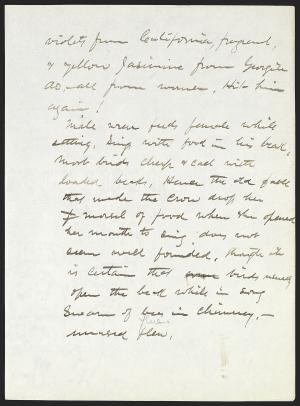 violets from California, fragrant,
& yellow Jasmine from Georgia
all from women. Hit him
again!
Male wren feeds female while
setting. Sings with food in his beak,
most birds cheep & call with
loaded beaks. Hence the old fable
that made the crow drop her
morsel of food when she opened
her mouth to sing does not
seem well founded, though it
is certain that birds rarely
open the beak while in song
Swarm of bees in chimney,—
flew.